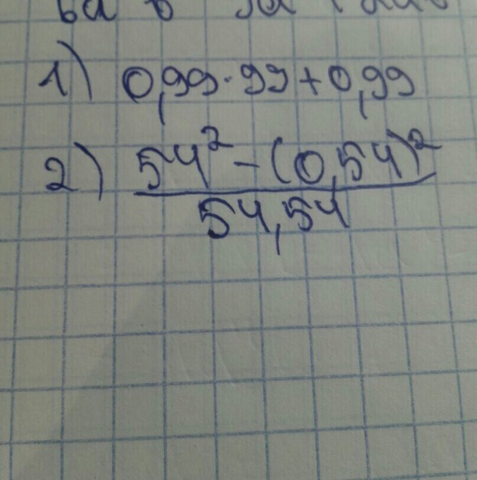 1) 0,99·99+0,99
2) 54² - (0,54)²
54,54